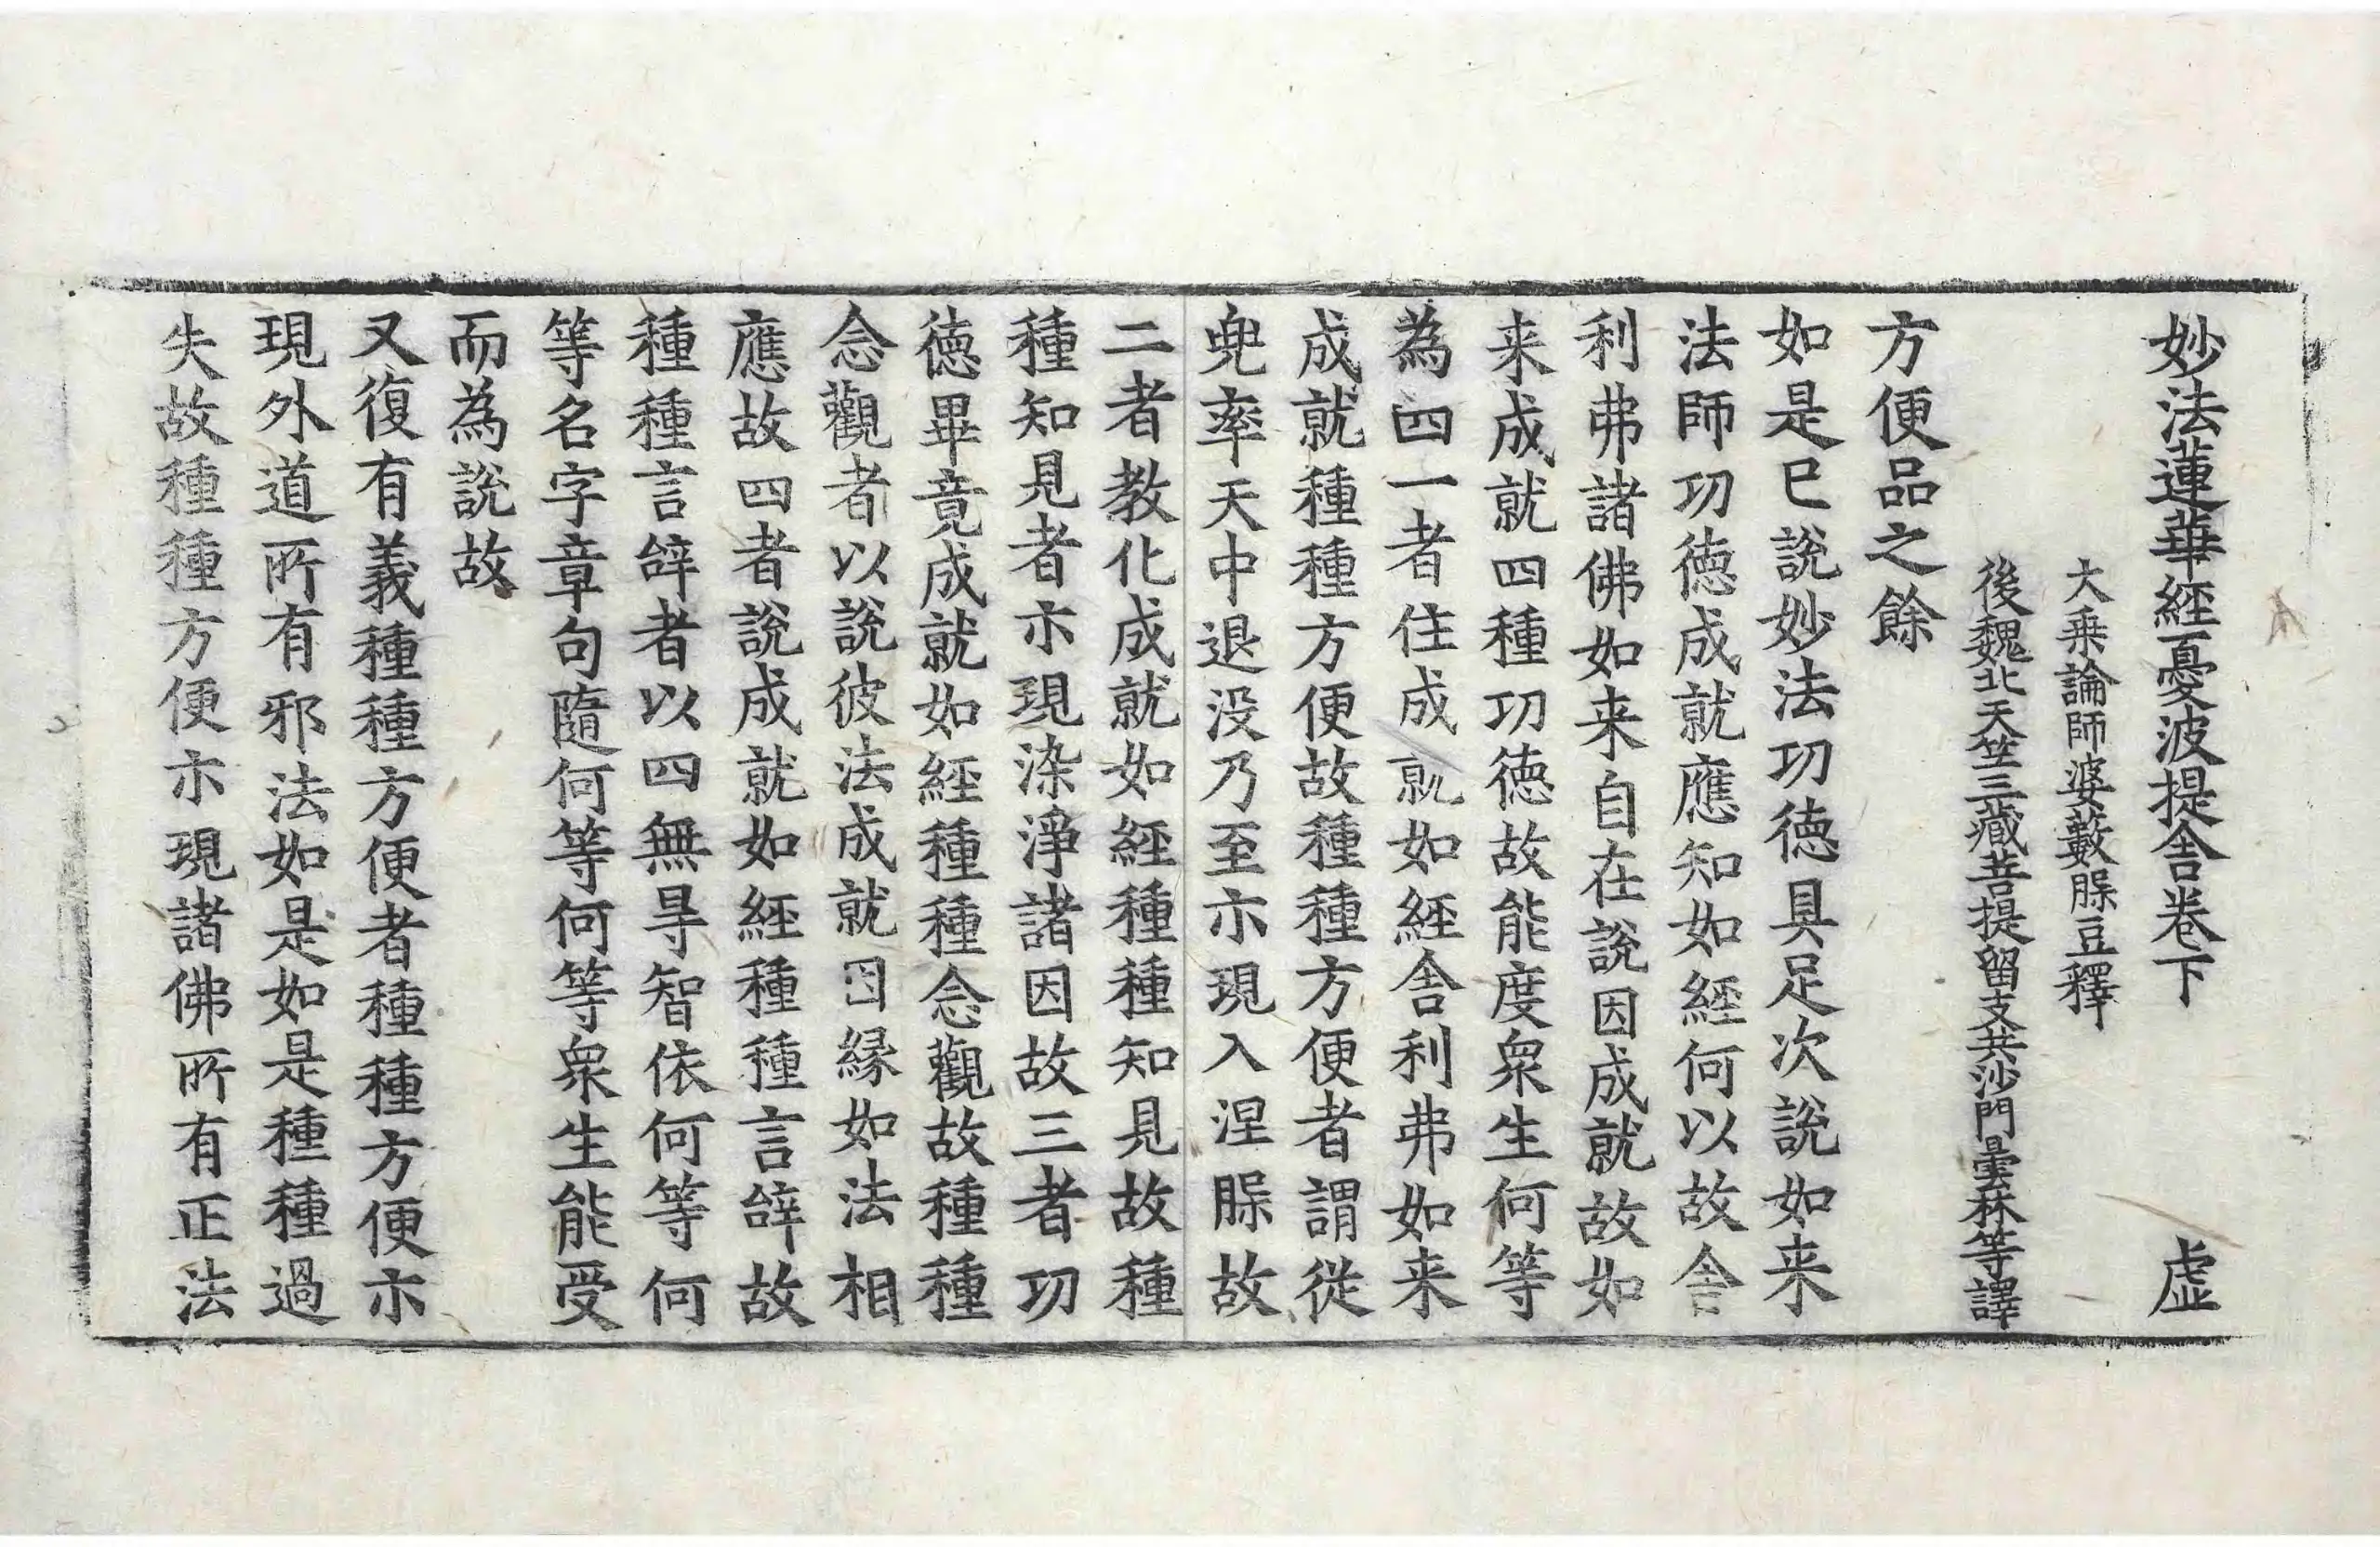 妙法蓮華經憂波提舍卷下 虛
大乗論師婆藪腂豆釋
後魏北天竺三藏菩提留支共沙門曇林等譯
方便品之餘
如是已說妙法功徳具足次說如来
法師功徳成就應知如經何以故舍
利弗諸佛如来自在說因成就故如
来成就四種功徳故能度衆生何等
為四一者住成就如經舍利弗如来
成就種種方便故種種方便者謂従
兜率天中退没乃至示現入涅腂故
二者教化成就如經種種知見故種
種知見者示現染淨諸因故三者功
徳畢竟成就如經種種念觀故種種
念觀者以說彼法成就因緣如法相
應故四者說成就如經種種言辝故
種種言辝者以四無㝵智依何等何
等名字章句隨何等何等衆生能受
而為說故
又復有義種種方便者種種方便示
現外道所有邪法如是如是種種過
失故種種方便示現諸佛所有正法